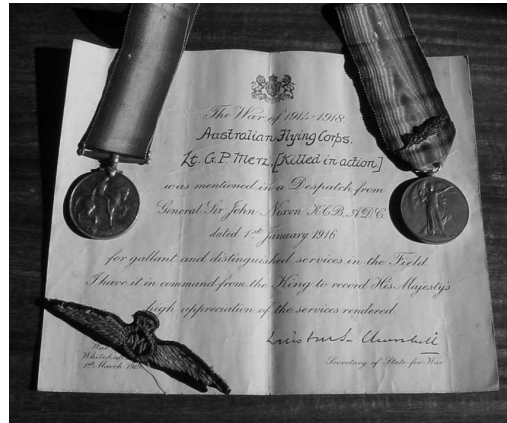 The War of 1914-1918.
Australian Flying Corps.
Lt. G. P. Merz, [Killed in action]
was mentioned in a Despatch from
General Sir John Nixon K.C.B. A.D.C.
dated 1st January 1916
for gallant and distinguished services in the Field.
I have it in command from the King to record His Majesty's
high appreciation of the services rendered.
Winston S. Churchill
Secretary of State for War
War
Whitehall
1st March 191